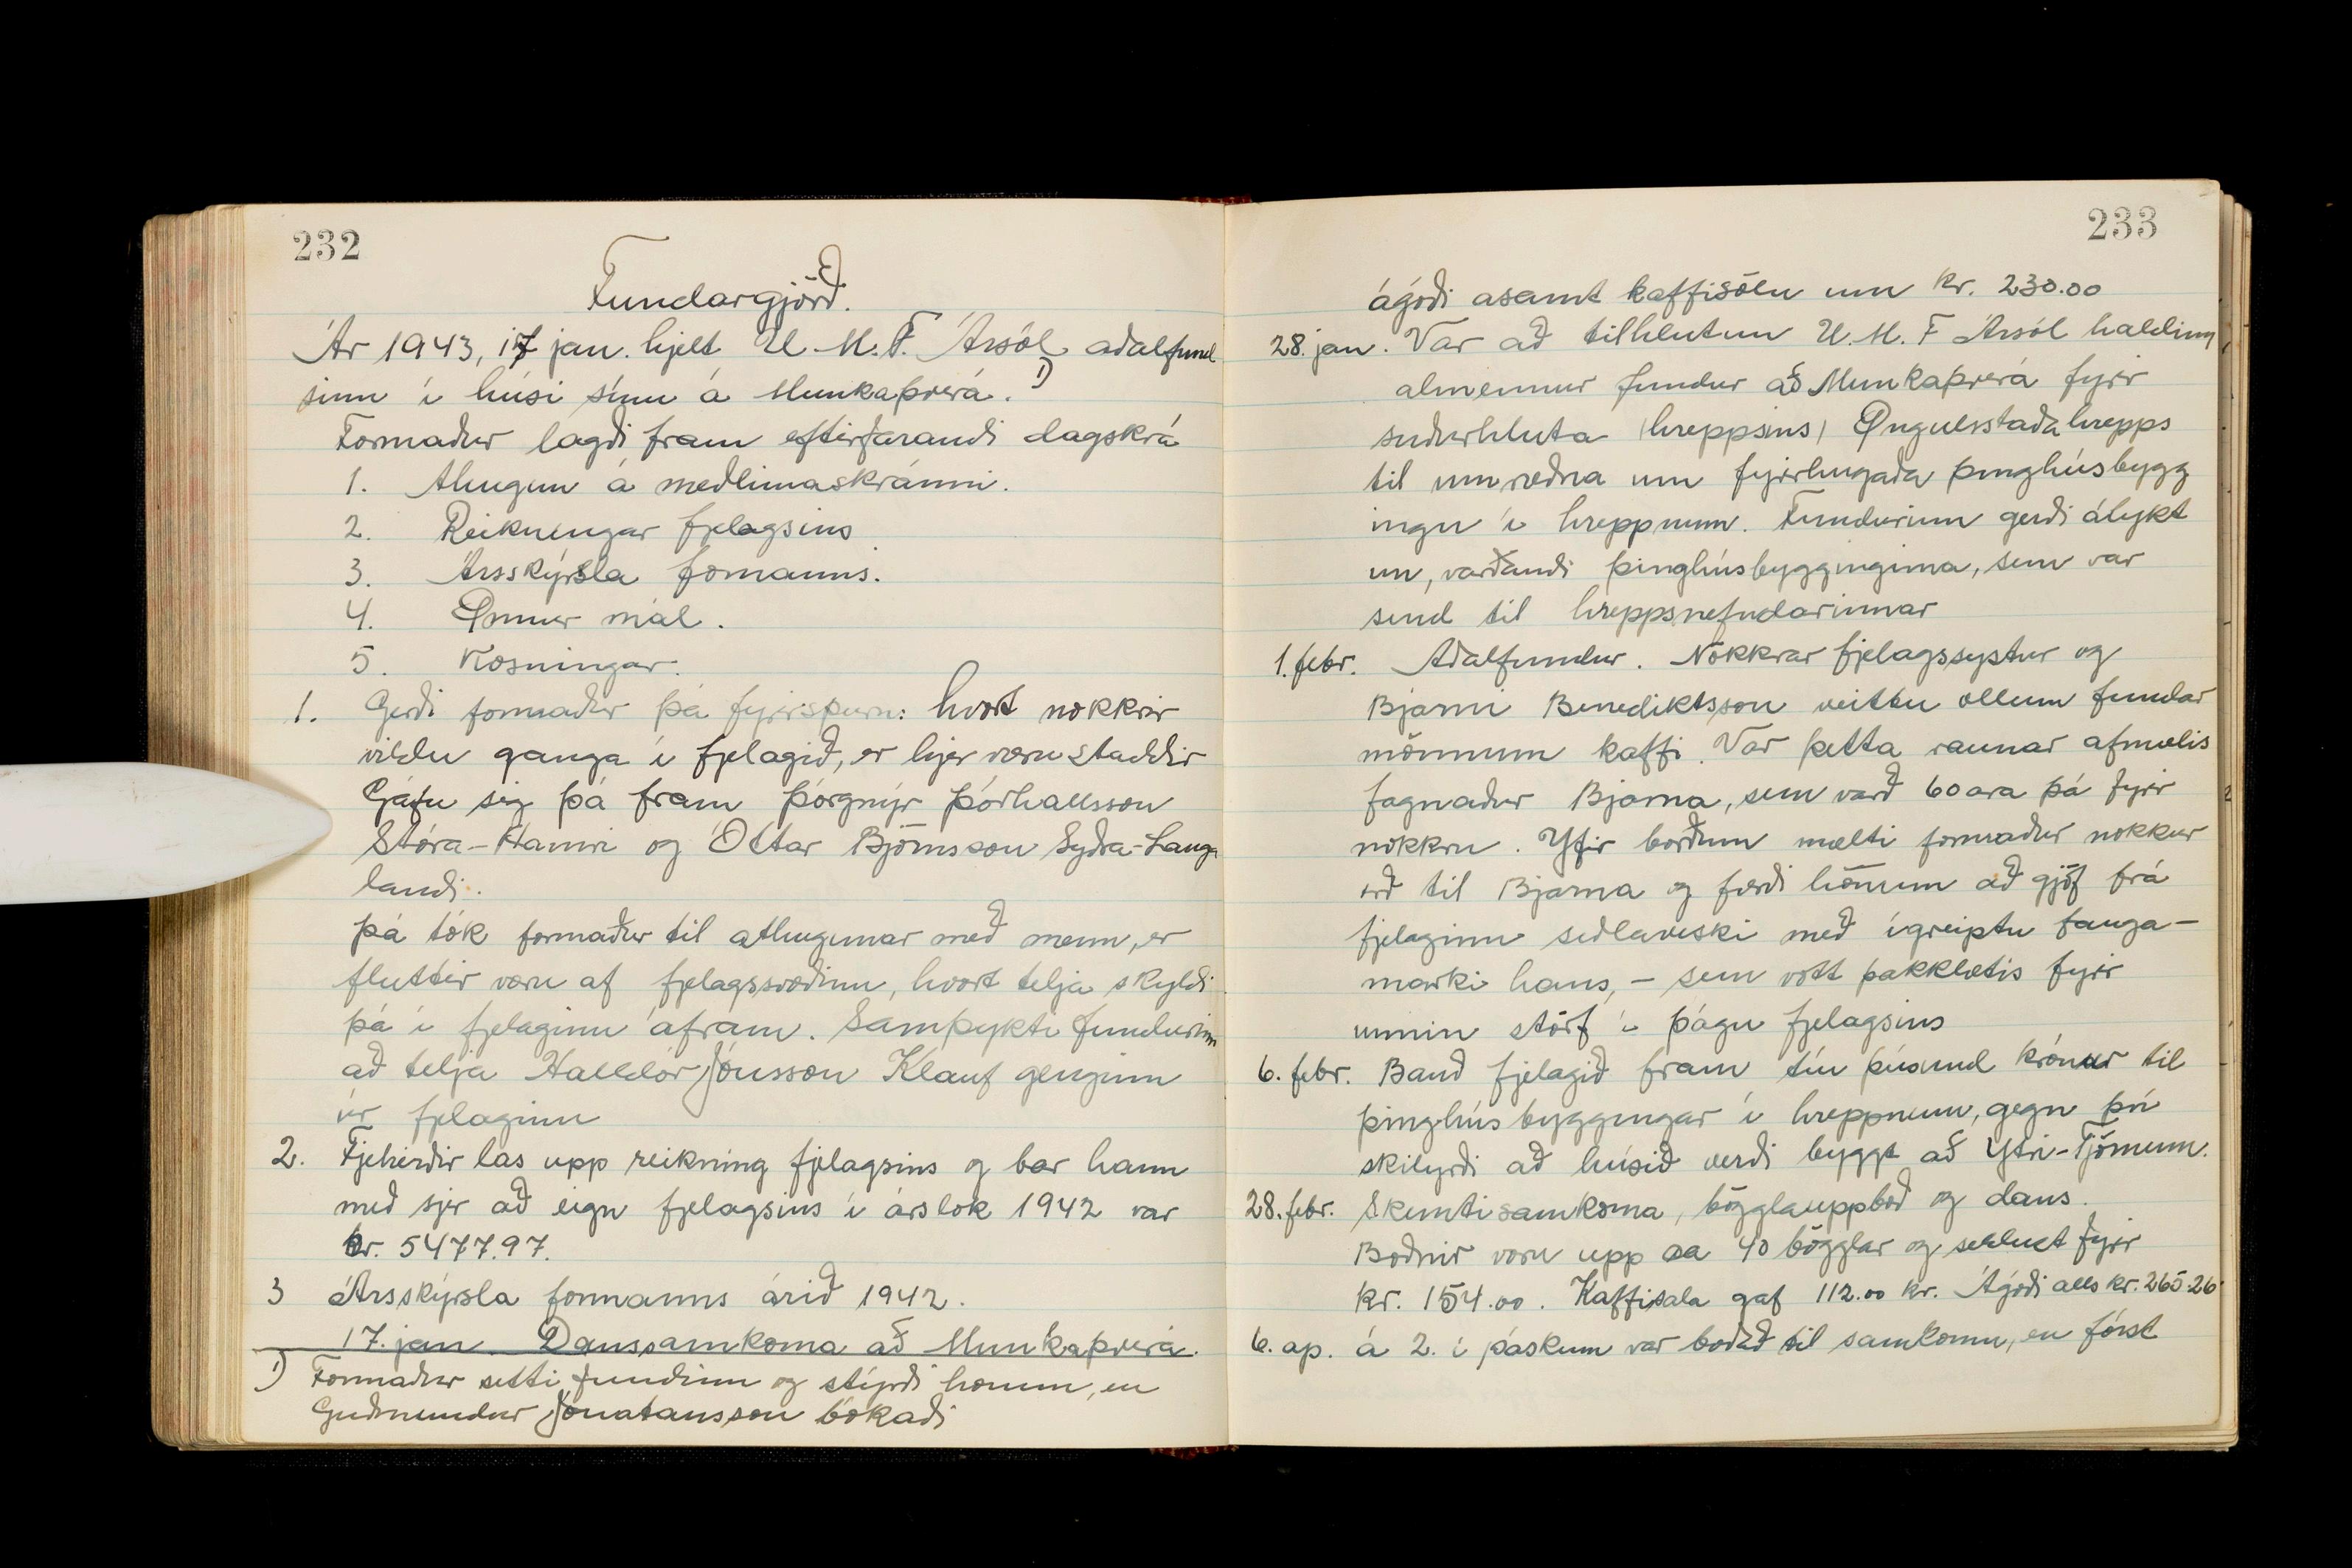 232
Fundargjörð.
Ár 1943, 17 jan. hjelt U.M.F. Ársól aðalfund
sinn í húsi sínu á Munkaþverá. 1)
Formaður lagði fram eftirfarandi dagskrá
1. Athugun á meðlimaskránni.
2. Reikningar fjelagsins
3. Ársskýrsla formanns.
4. Önnur mál.
5. Kosningar.
1. Gerði formaður þá fyrirspurn: hvort nokkrir
vildu ganga í fjelagið, er hjer væru staddir
Gáfu sig þá fram Þórgnýr Þórhallsson
Stóra-Hamri og Óttar Björnsson Syðra-Lauga
landi.
Þá tók formaður til athugunar með menn, er
fluttir væru af fjelagssvæðinu, hvort telja skyldi
þá í fjelaginu áfram. Samþykti fundurinn
að telja Halldór Jónsson Klauf genginn
úr fjelaginu
2. Fjehirðir las upp reikning fjelagsins og bar hann
með sjer að eign fjelagsins í árslok 1942 var
kr. 5477.97.
3 Ársskýrsla formanns árið 1942.
17. jan. Danssamkoma að Munkaþverá.
1) Formaður setti fundinn og stýrði honum, en
Guðmundur Jónatansson bókaði
233
ágóði asamt kaffisölu um kr. 230.00
28. jan. Var að tilhlutun U.M.F Ársól haldinn
almennur fundur að Munkaþverá fyrir
suðurhluta (hreppsins) Öngulsstaðahrepps
til umræðna um fyrirhugaða þinghúsbygg
ingu í hreppnum. Fundurinn gerði álykt
un, varðandi þinghúsbygginguna, sem var
send til hreppsnefndarinnar
1. febr. Aðalfundur. Nokkrar fjelagssystur og
Bjarni Benediktsson veittu öllum fundar
mönnum kaffi. Var þetta raunar afmælis
fagnaður Bjarna, sem varð 60 ára þá fyrir
nokkru. Yfir borðum mælti formaður nokkur
orð til Bjarna og færði honum að gjöf frá
fjelaginu seðlaveski með ígreiptu fanga-
marki hans, - sem vott þakklætis fyrir
unnin störf í þágu fjelagsins
6. febr. Bauð fjelagið fram tíu þúsund krónur til
þinghúsbyggingar í hreppnum, gegn því
skilyrði að húsið verði byggt að Ytri-Tjörnum.
28. febr. Skemtisamkoma, bögglauppboð og dans.
Boðnir voru upp ca 40 bögglar og seldust fyrir
kr. 154.00. Kaffisala gaf 112.00 kr. Ágóði alls kr. 265.26
6. ap. á 2. í páskum var boðað til samkomu, en fórst